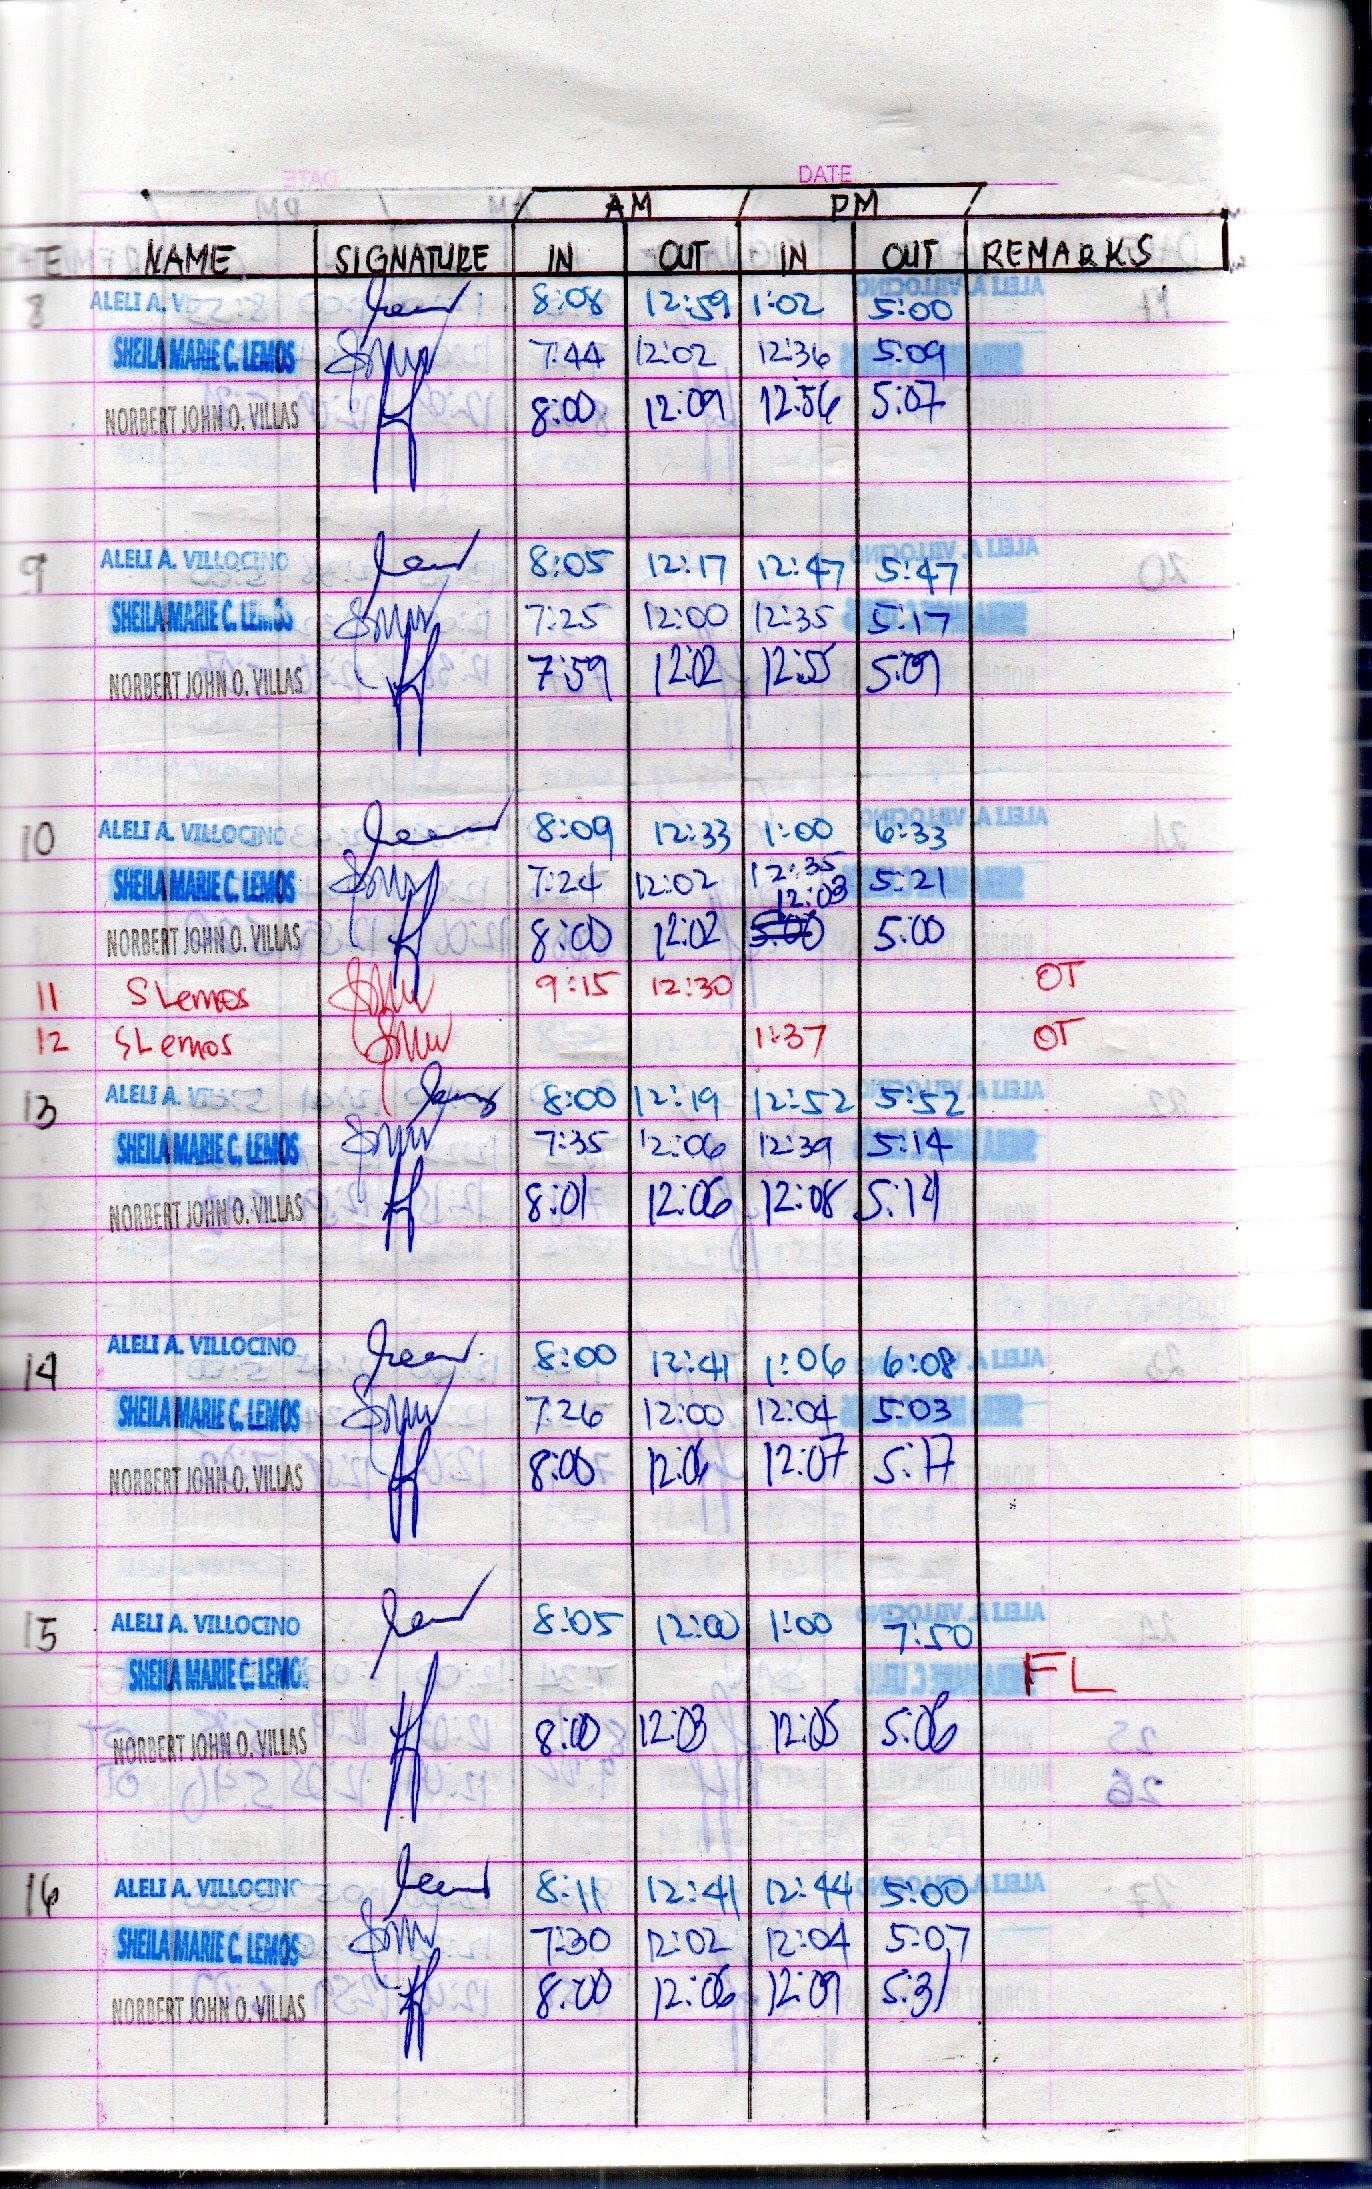 DATE
AM PM
E NAME SIGNATURE IN OUT IN OUT REMARKS
8 ALELI A. V 8:08 12:59 1:02 5:00
SHEILA MARIE C. LEMOS 7:44 12:02 12:36 5:09
NORBERT JOHN O. VILLAS 8:00 12:09 12:56 5:07
9 ALELI A. VILLOCINO 8:05 12:17 12:47 5:47
SHEILA MARIE C. LEMOS 7:25 12:00 12:35 5:17
NORBERT JOHN O. VILLAS 7:59 12:02 12:55 5:09
10 ALELI A. VILLOCINO 8:09 12:33 1:00 6:33
SHEILA MARIE C. LEMOS 7:24 12:02 12:35 5:21
NORBERT JOHN O. VILLAS 8:00 12:02 12:03 5:00
11 SLemos 9:15 12:30 OT
12 SLemos 1:37 OT
13 ALELI A. V 8:00 12:19 12:52 5:52
SHEILA MARIE C. LEMOS 7:35 12:06 12:39 5:14
NORBERT JOHN O. VILLAS 8:01 12:06 12:08 5:14
14 ALELI A. VILLOCINO 8:00 12:41 1:06 6:08
SHEILA MARIE C. LEMOS 7:26 12:00 12:04 5:03
NORBERT JOHN O. VILLAS 8:00 12:06 12:07 5:17
15 ALELI A. VILLOCINO 8:05 12:00 1:00 7:50
SHEILA MARIE C. LEMOS FL
NORBERT JOHN O. VILLAS 8:00 12:03 12:05 5:06
16 ALELI A. VILLOCINO 8:11 12:41 12:44 5:00
SHEILA MARIE C. LEMOS 7:30 12:02 12:04 5:07
NORBERT JOHN O. VILLAS 8:00 12:06 12:09 5:31